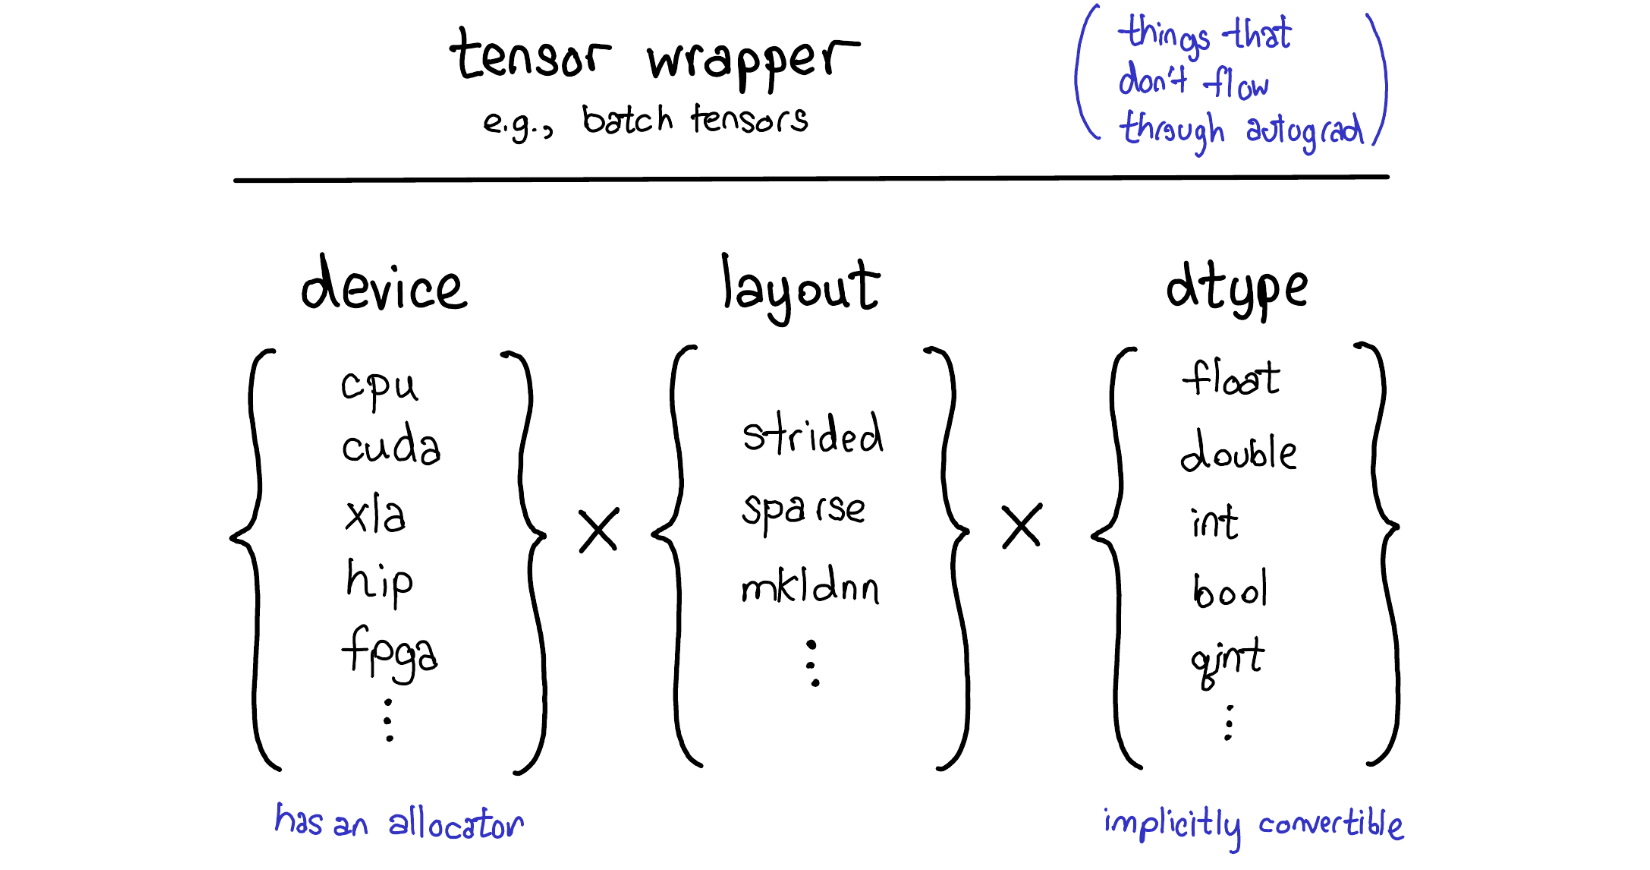 tensor wrapper
e.g., batch tensors
(things that
don't flow
through autograd)
device
layout
dtype
{
cpu
cuda
xla
hip
fpga
⋮
}
×
{
strided
sparse
mkldnn
⋮
}
×
{
float
double
int
bool
qint
⋮
}
has an allocator
implicitly convertible